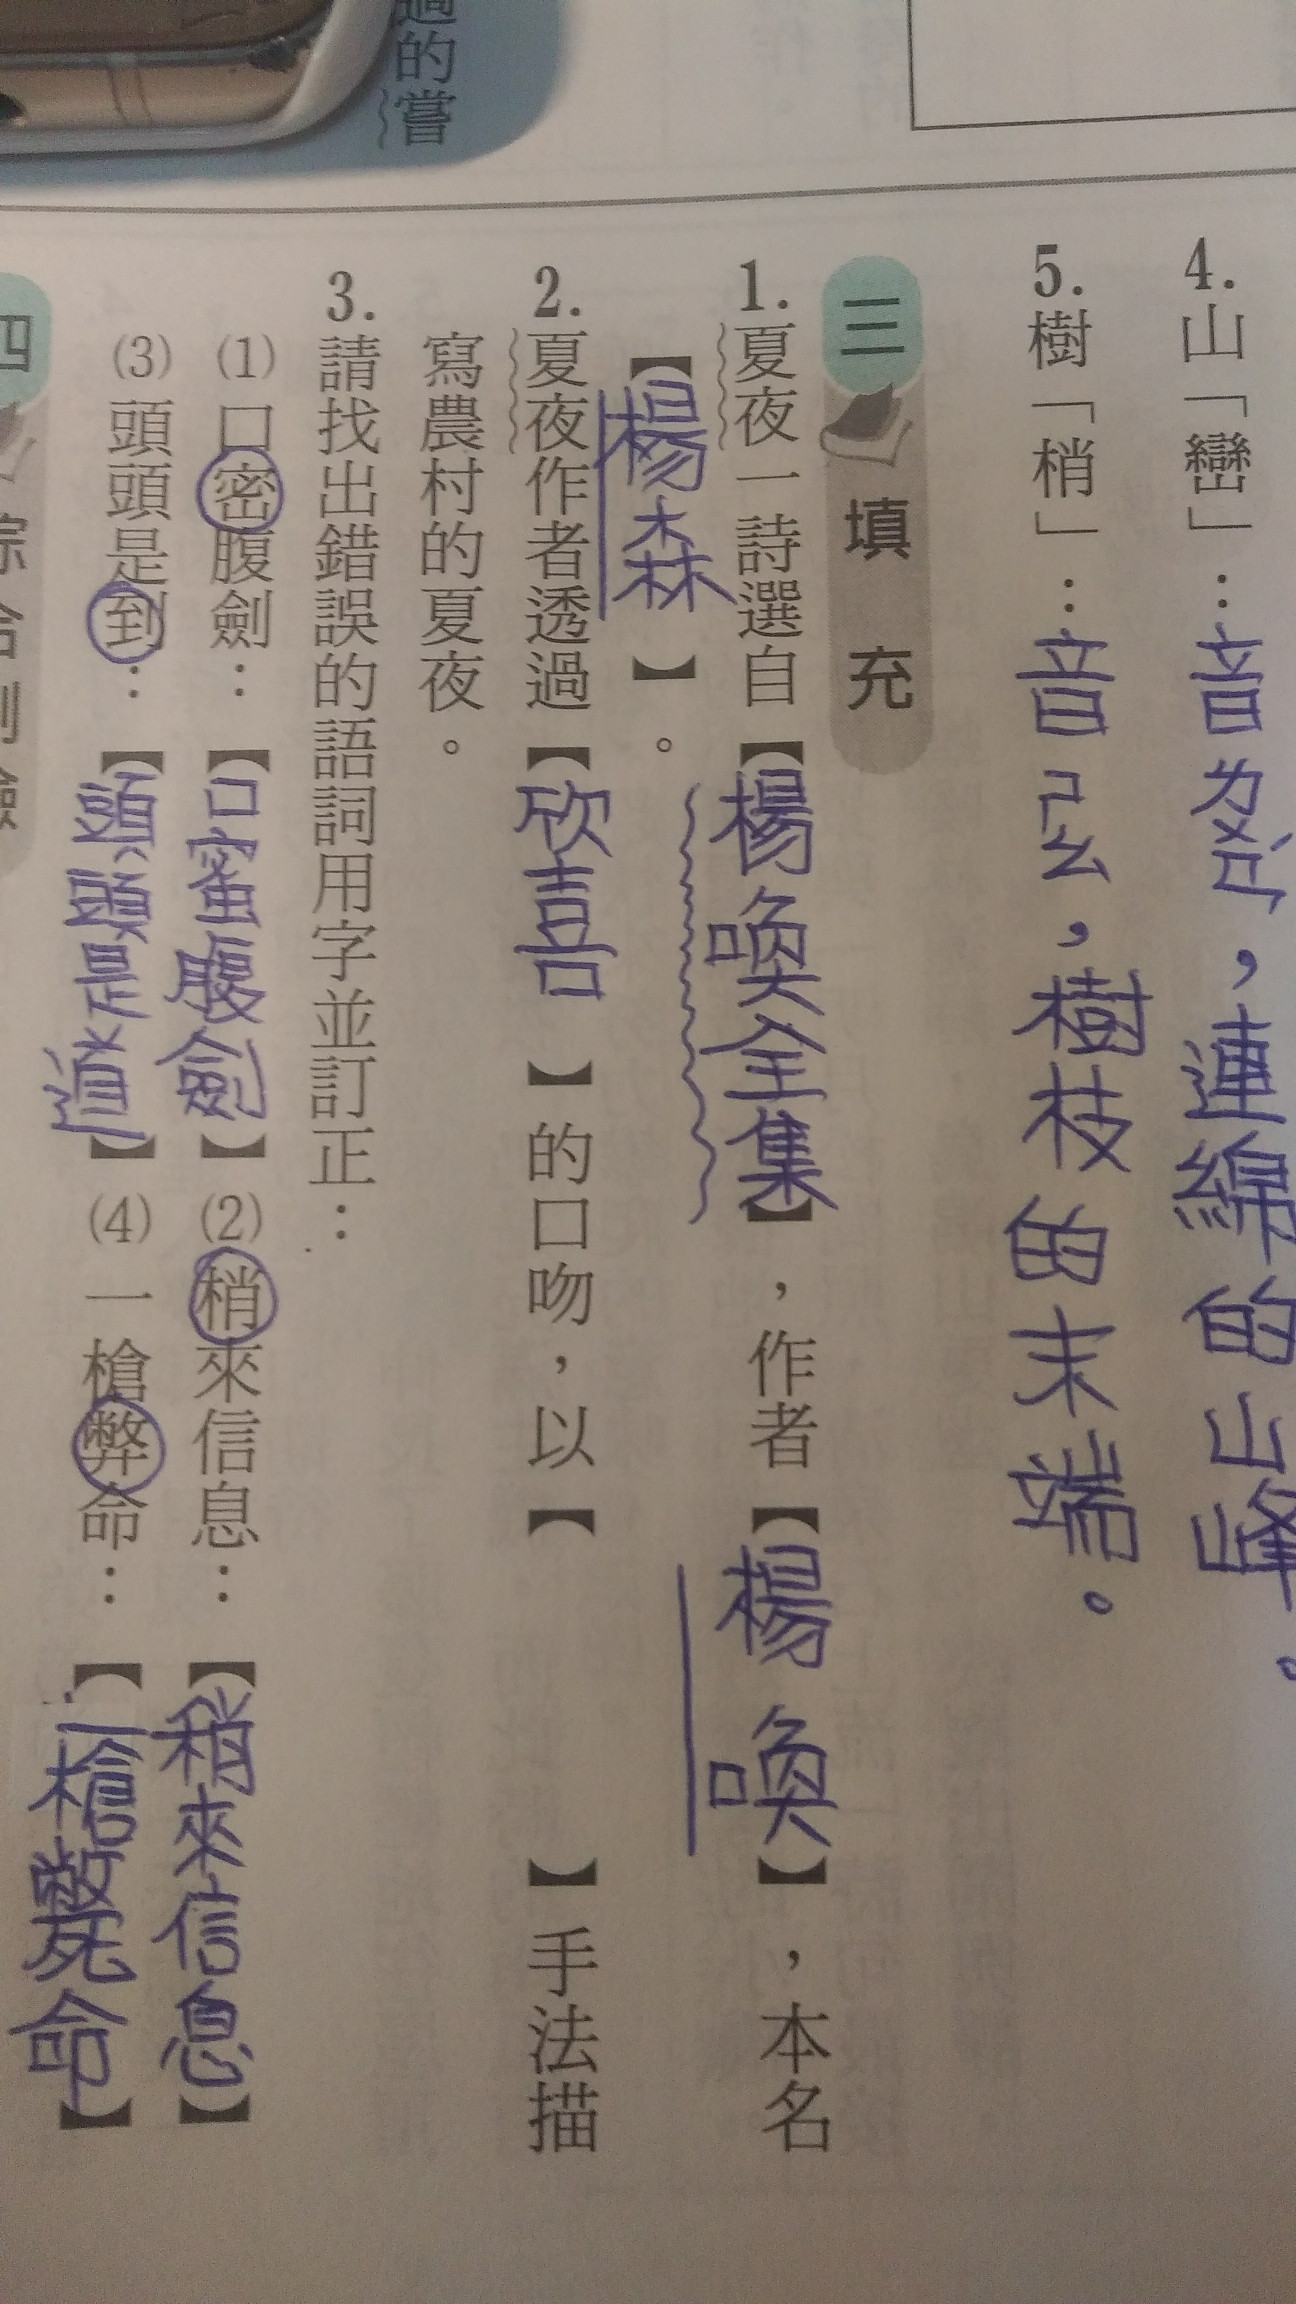 4. 山「巒」：音ㄌㄨㄢˊ，連綿的山峰。
5. 樹「梢」：音ㄕㄠ，樹枝的末端。
三 填充
1. 夏夜一詩選自【楊喚全集】，作者【楊喚】，本名
【楊森】。
2. 夏夜作者透過【欣喜】的口吻，以【 】手法描
寫農村的夏夜。
3. 請找出錯誤的語詞用字並訂正：
(1) 口密腹劍：【口蜜腹劍】 (2) 梢來信息：【稍來信息】
(3) 頭頭是到：【頭頭是道】 (4) 一槍弊命：【一槍斃命】
四
過的嘗